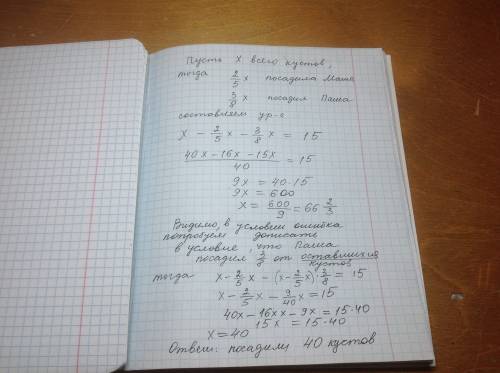 Пусть x всего кустов,
тогда 2/5 x посадила Маша
3/8 x посадил Паша
составляем ур-е
x - 2/5 x - 3/8 x = 15
(40x - 16x - 15x)/40 = 15
9x = 40·15
9x = 600
x = 600/9 = 66 2/3
Видимо, в условии ошибка
попробуем дописать
в условие, что Паша
посадил 3/8 от оставшихся
кустов
тогда x - 2/5 x - (x - 2/5 x)·3/8 = 15
x - 2/5 x - 9/40 x = 15
40x - 16x - 9x = 15·40
15x = 15·40
x = 40
Ответ: посадили 40 кустов